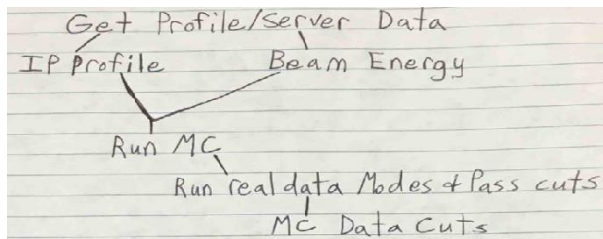 Get Profile/Server Data
IP Profile Beam Energy
Run MC
Run real data Modes & Pass cuts
MC Data Cuts